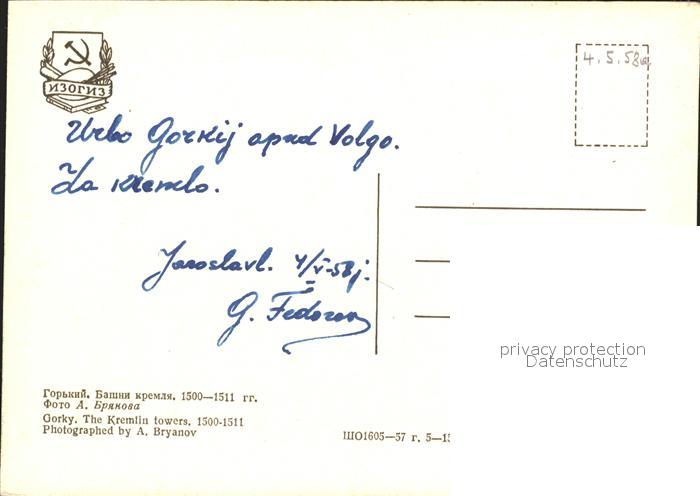 ИЗОГИЗ
4. 5. 58
Urbo Gorkij apud Volgo.
La kremlo.
Jaroslavl. 4/V-58j.
G. Fedorov
privacy protection
Datenschutz
Горький. Башни кремля. 1500—1511 гг.
Фото А. Брянова
Gorky. The Kremlin towers. 1500-1511
Photographed by A. Bryanov
ШО1605—57 г. 5—15